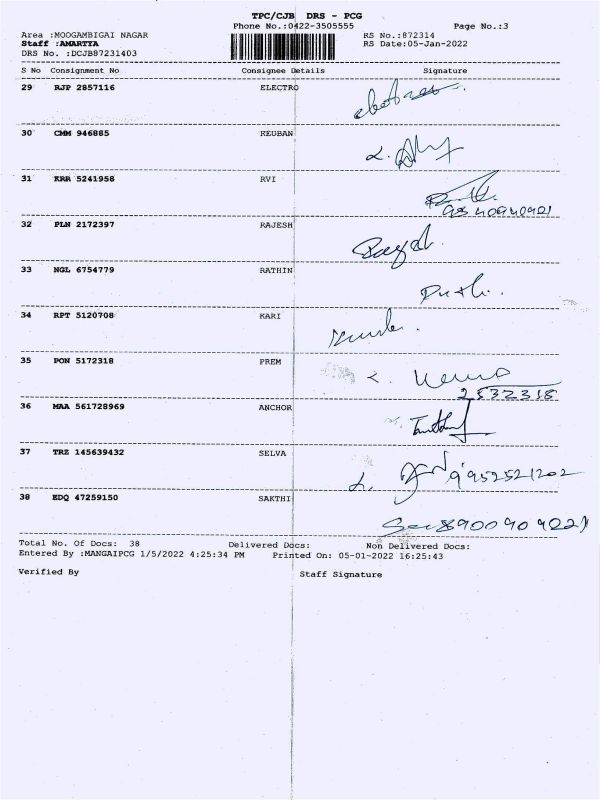 TPC/CJB DRS - PCG
Phone No.:0422-3505555 Page No.:3
Area :MOOGAMBIGAI NAGAR RS No.:872314
Staff :AMARTYA RS Date:05-Jan-2022
DRS No. :DCJB87231403
S No Consignment No Consignee Details Signature
29 RJP 2857116 ELECTRO
30 CMM 946885 REUBAN
31 KRR 5241958 RVI
32 PLN 2172397 RAJESH
33 NGL 6754779 RATHIN
34 RPT 5120708 KARI
35 PON 5172318 PREM
2532318
36 MAA 561728969 ANCHOR
37 TRZ 145639432 SELVA
9952521202
38 EDQ 47259150 SAKTHI
8900909021
Total No. Of Docs: 38 Delivered Docs: Non Delivered Docs:
Entered By :MANGAIPCG 1/5/2022 4:25:34 PM Printed On: 05-01-2022 16:25:43
Verified By Staff Signature